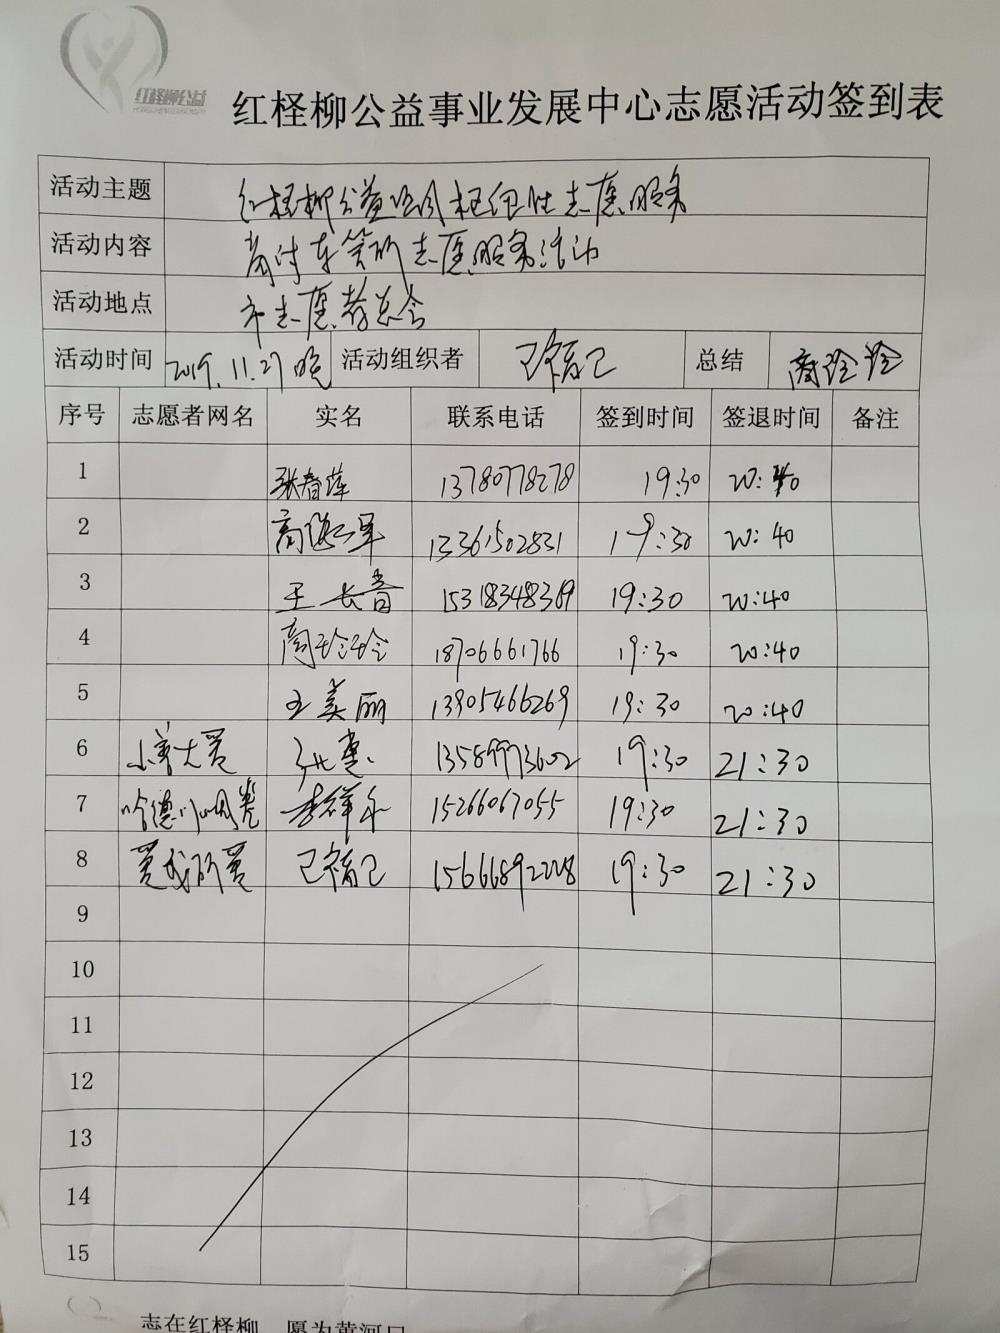 红柽柳公益
红柽柳公益事业发展中心志愿活动签到表
活动主题 红柽柳公益 志愿服务
活动内容 志愿服务活动
活动地点 市志愿者总会
活动时间 2019.11.27晚 活动组织者 总结 商玲玲
序号 志愿者网名 实名 联系电话 签到时间 签退时间 备注
1 张春萍 13780778278 19:30 20:40
2 商 军 13361502831 19:30 20:40
3 王长青 15318348369 19:30 20:40
4 商玲玲 18706661766 19:30 20:40
5 王美丽 13905466269 19:30 20:40
6 13589973602 19:30 21:30
7 15266067055 19:30 21:30
8 15666892228 19:30 21:30
9
10
11
12
13
14
15
志在红柽柳 愿为黄河口